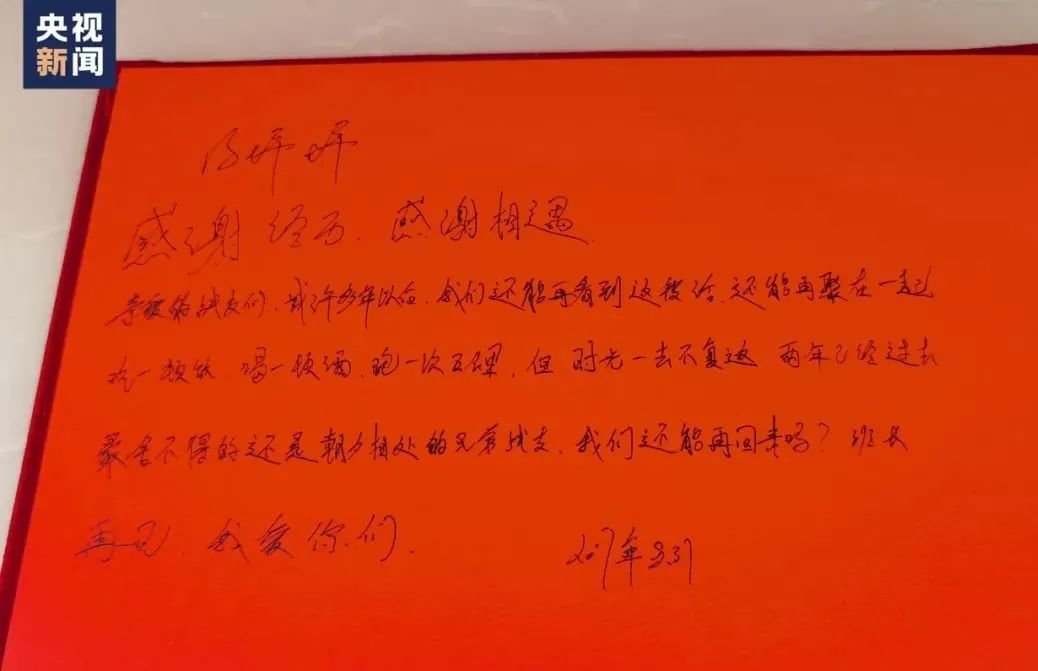 央视
新闻
冯坪坪
感谢经历、感谢相遇.
亲爱的战友们、或许多年以后、我们还能再看到这段话、还能再聚在一起
吃一顿饭 喝一顿酒、跑一次五公里、但 时光一去不复返 两年已经过去
最舍不得的还是朝夕相处的兄弟战友、我们还能再回来吗? 班长
再见、我爱你们.